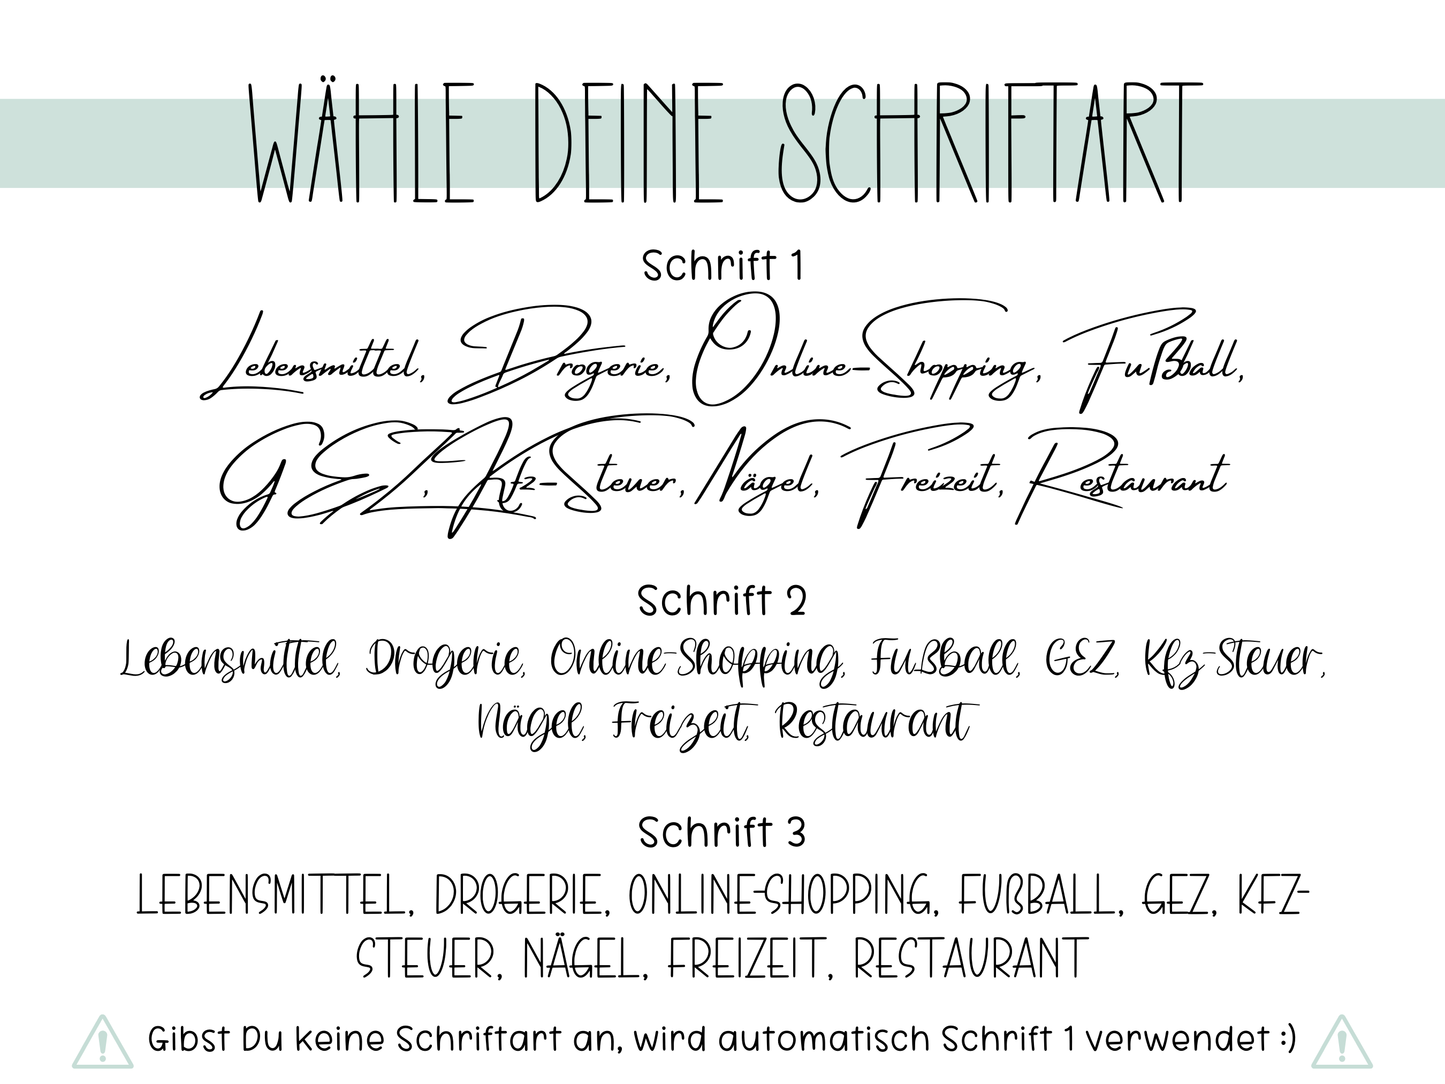 WÄHLE DEINE SCHRIFTART
Schrift 1
Lebensmittel, Drogerie, Online-Shopping, Fußball,
GEZ, Kfz-Steuer, Nägel, Freizeit, Restaurant
Schrift 2
Lebensmittel, Drogerie, Online-Shopping, Fußball, GEZ, Kfz-Steuer,
Nägel, Freizeit, Restaurant
Schrift 3
LEBENSMITTEL, DROGERIE, ONLINE-SHOPPING, FUßBALL, GEZ, KFZ-
STEUER, NÄGEL, FREIZEIT, RESTAURANT
Gibst Du keine Schriftart an, wird automatisch Schrift 1 verwendet :)